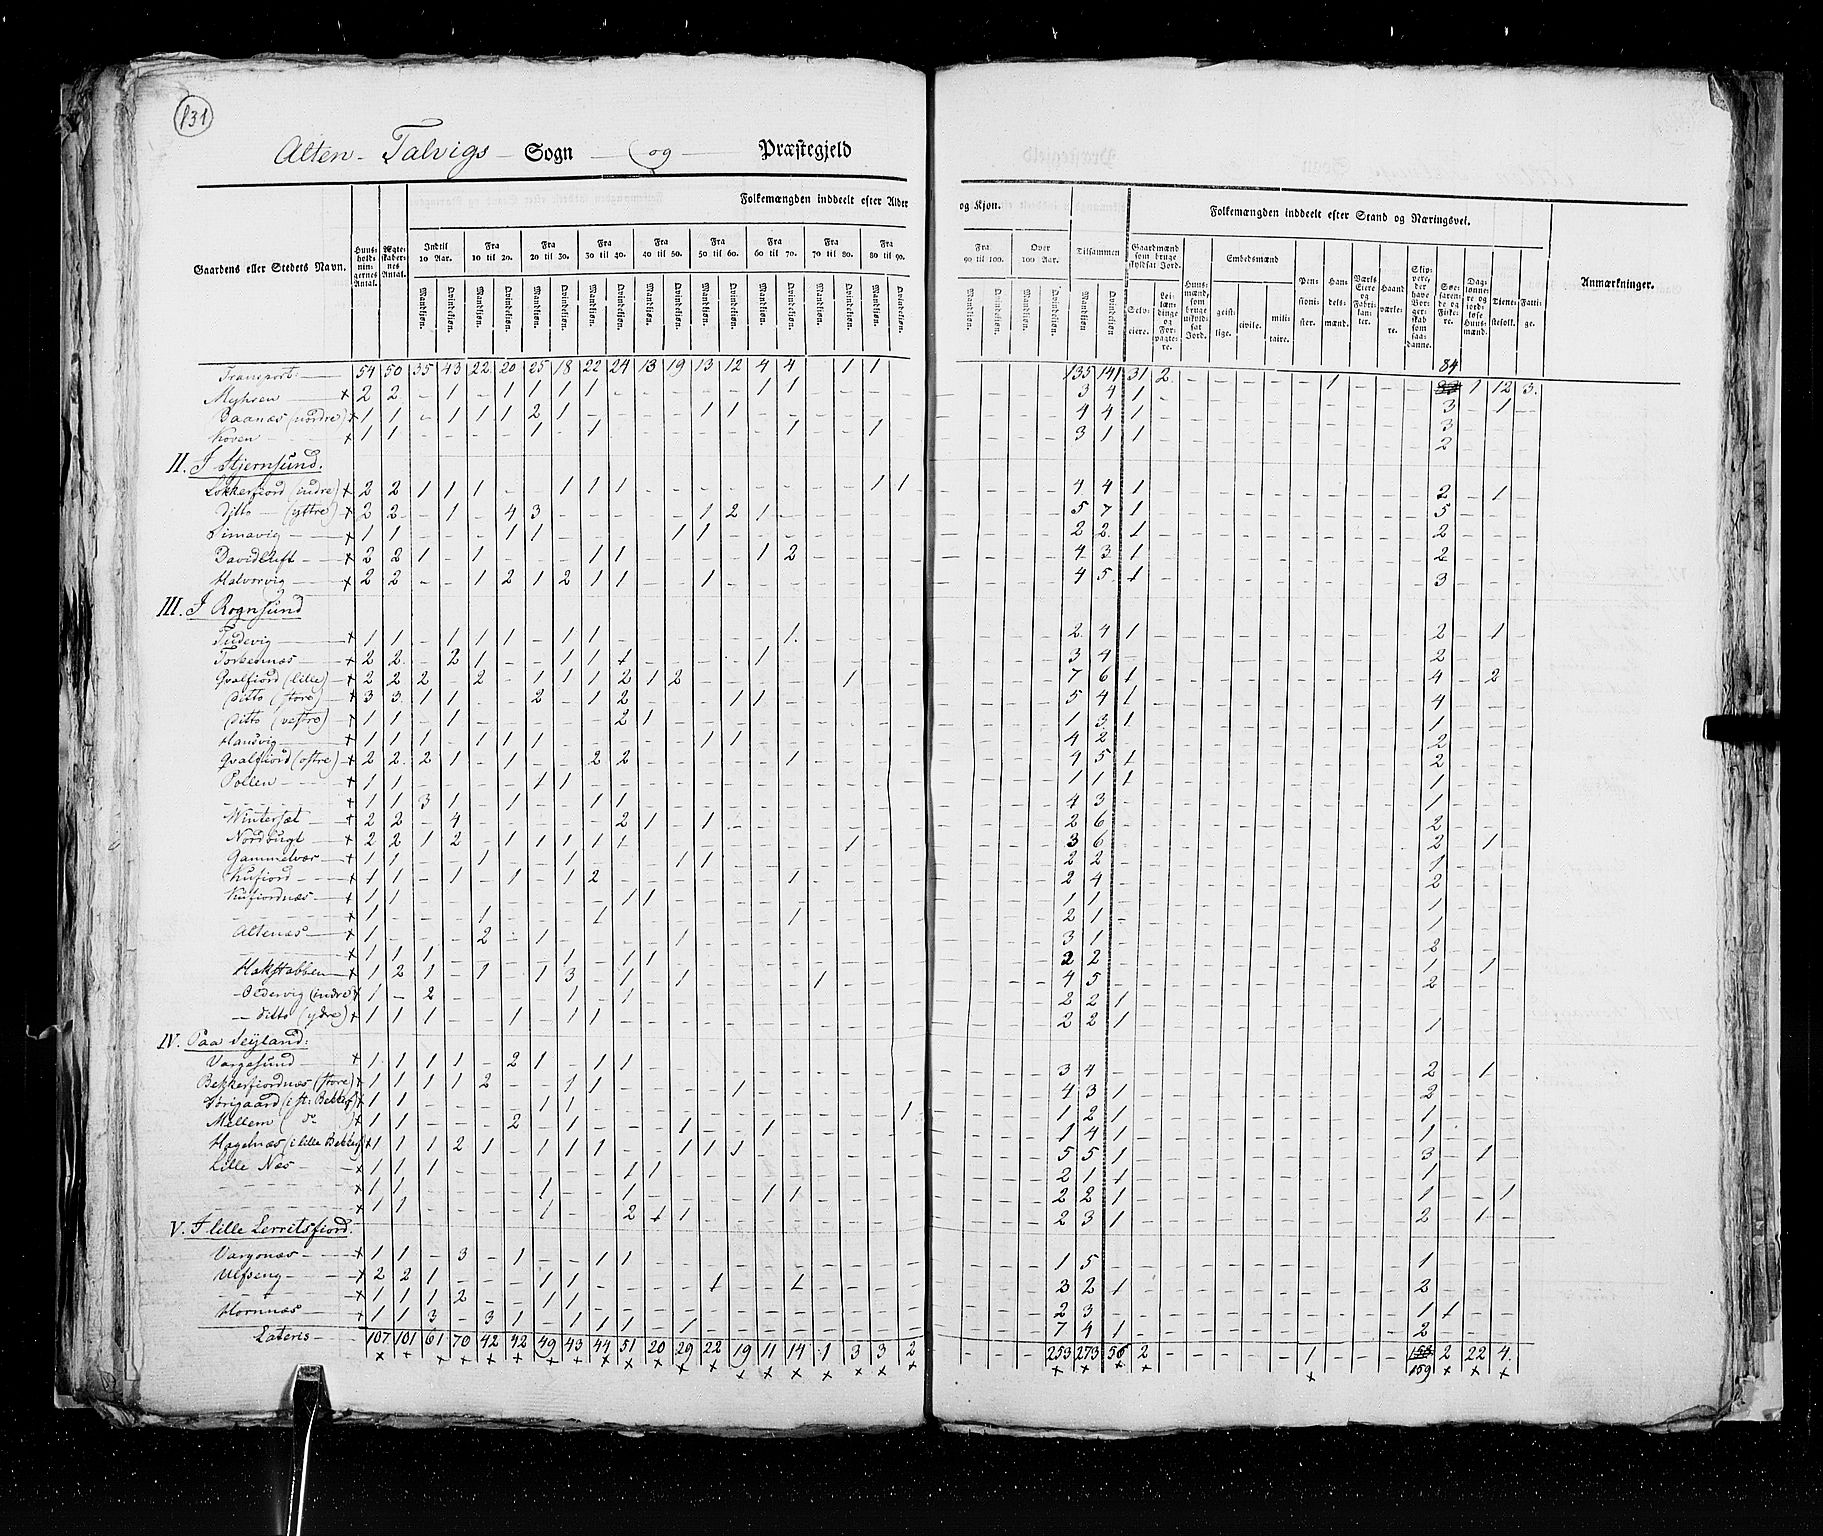 131
Alten-Talvigs Sogn og Præstegjeld
Folkemængden inddeelt efter Alder
og Kjøn.
Folkemængden inddeelt efter Stand og Næringsvei.
Gaardens eller Stedets Navn.
Huusholdningernes Antal.
Ægteskabernes Antal.
Indtil 10 Aar. Fra 10 til 20. Fra 20 til 30. Fra 30 til 40. Fra 40 til 50. Fra 50 til 60. Fra 60 til 70. Fra 70 til 80. Fra 80 til 90.
Mandkjøn. Qvindekjøn. Mandkjøn. Qvindekjøn. Mandkjøn. Qvindekjøn. Mandkjøn. Qvindekjøn. Mandkjøn. Qvindekjøn. Mandkjøn. Qvindekjøn. Mandkjøn. Qvindekjøn. Mandkjøn. Qvindekjøn. Mandkjøn. Qvindekjøn.
Fra 90 til 100. Over 100 Aar. Tilsammen
Mandkjøn. Qvindekjøn. Mandkjøn. Qvindekjøn. Mandkjøn Qvindekjøn
Gaardmænd som bruge skyldsat Jord.
Selveiere. Leilændinge og Forpagtere.
Huusmænd, som bruge uskyldsat Jord.
Embedsmænd
geistlige. civile. militaire.
Pensionister.
Handelsmænd.
Værks Eiere og Fabrikanter.
Haandværkere.
Skippere, der have Borgerskab som saadanne.
Søefarende og Fiskere.
Daglønnere og jordløse Huusmænd.
Tienestefolk.
Fattige.
Anmærkninger.
Transport: 54 50 35 43 22 20 25 18 22 24 13 19 13 12 4 4 1 1 135 141 31 2 1 84 1 12 3.
Myhren 2 2 3 4 1 3 1
Baanæs (nordre) 1 1 4 4 1 3
Koven 1 1 3 1 1 2
II. I Stjernsund.
Lokkerfiord (indre) 2 2 1 1 1 1 1 1 1 1 4 4 1 2 1
Ditto (yttre) 2 2 1 4 3 1 2 1 5 7 1 5
Simavig 1 1 1 1 1 1 2 2 1 2
Davidluft 2 2 1 1 1 1 1 2 4 3 1 2
Halvorvig 2 2 1 2 1 2 1 1 1 4 5 1 3
III. I Rognsund
Tudevig 1 1 1 1 1 1 1 1 2 4 1 2 1
Torkednæs 2 2 2 1 1 1 1 1 3 4 2
Qvalfiord (lille) 2 2 2 2 1 1 1 2 1 2 1 7 6 1 4 2
Ditto (store) 3 3 1 1 2 1 2 1 1 5 4 1 4
Ditto (vestre) 1 1 1 2 1 1 3 1 1
Hansvig 1 1 1 1 1 1 1 4 2 2
Qvalfiord (østre) 2 2 2 1 1 2 2 1 4 5 1 2
Pollen 1 1 1 1 1 1 1 1
1 1 3 1 1 1 1 4 3 1
Wintersæt 2 2 4 2 1 1 2 6 2
Nordbugt 2 2 1 2 1 1 1 1 1 1 3 6 2 1
Gammelvær 1 1 1 1 1 1 2 2 1
Kufiord 1 1 1 1 1 2 1 2 4 2
Kufiordnæs 1 1 1 1 1 1 1
1 1 1 1 2 1 1
Altenæs 1 2 1 1 3 1 2
1 1 1 1 1 1 2 2 1 1
Hakstabben 1 2 1 1 1 3 1 1 1 4 5 2
Oldervig (indre) 1 2 1 1 2 2 1
ditto (ydre) 1 1 1 1 1 1 2 2 1 1
IV. Paa Seiland:
Vargesund 1 1 1 1 2 1 1 1 3 4 2 1
Bekkerfiordnæs (store) 1 1 1 1 2 1 1 1 4 3 1 2
Sørigaard (i st: Bekkerf) 1 1 1 1 1 1 2 1 1
Mellem (do) 1 1 2 1 1 1 1 4 1 1
Hagelnæs (i lille Bekkerf) 1 1 1 2 1 1 1 1 1 1 1 5 5 1 3 1
Lille Næs 1 1 1 1 1 2 1 1 1
1 1 1 1 1 1 2 2 1 1 1
1 1 1 2 1 1 2 3 1 2 1
V. I lille Lerretsfiord.
Vargonæs 1 1 3 1 1 1 1 5 1
Ulfseng 2 2 1 1 1 1 1 3 2 1 2
1 1 1 2 1 1 2 3 1 1
Hornnæs 1 1 3 3 1 1 1 1 1 7 4 1 2
Lateris 107 101 61 70 42 42 49 43 44 51 20 29 22 19 11 14 1 3 3 2 253 273 56 2 1 159 2 22 4.